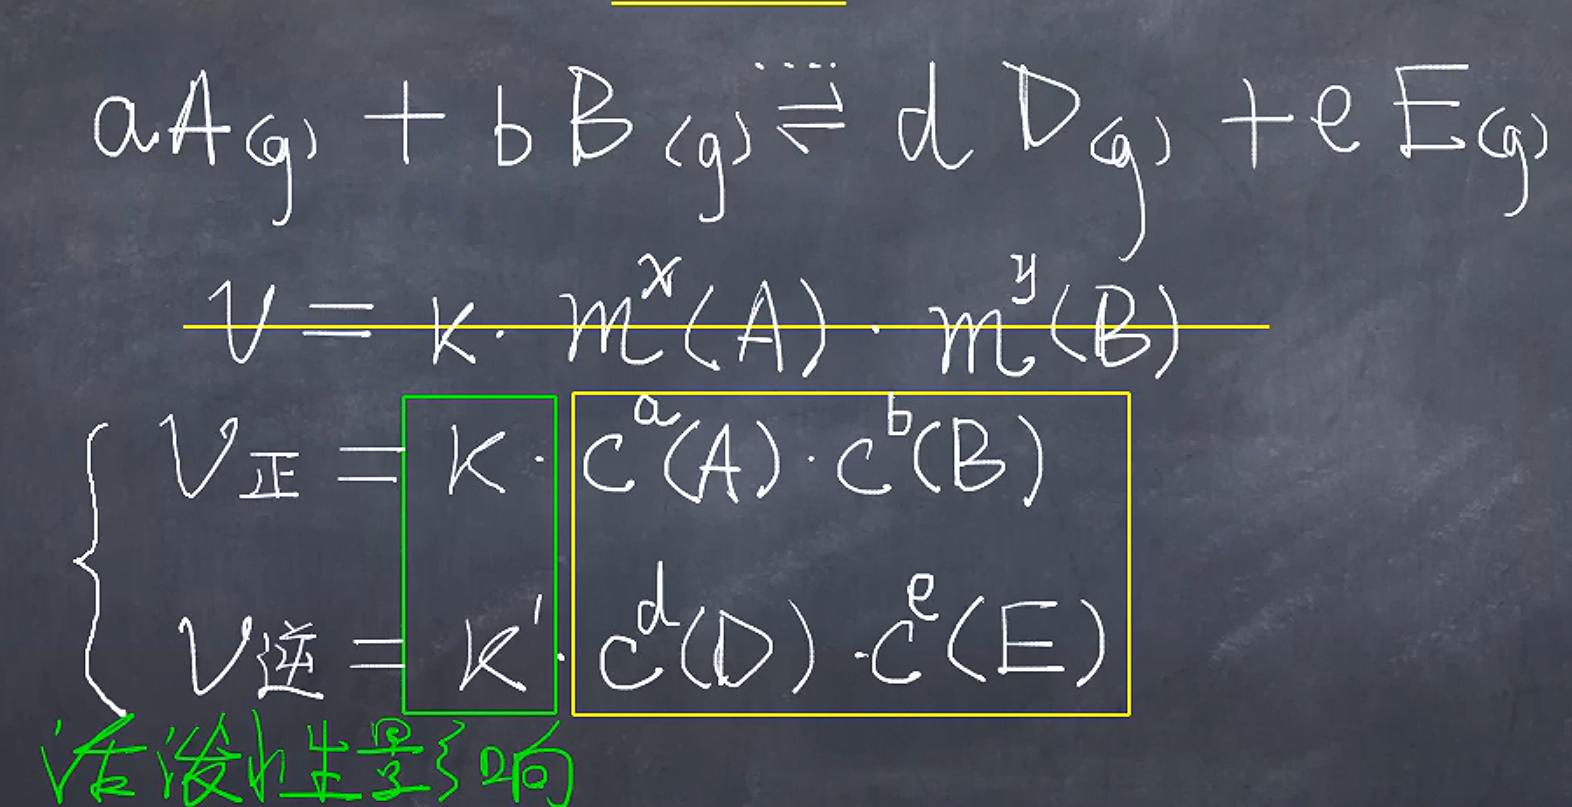 aA(g) + bB(g) ⇌ dD(g) + eE(g)
v = k · m^x(A) · m^y(B)
v正 = k · c^a(A) · c^b(B)
v逆 = k' · c^d(D) · c^e(E)
活泼性影响